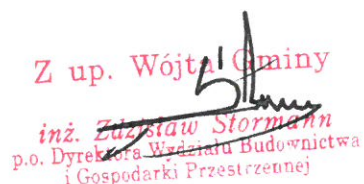 Z up. Wójta Gminy
inż. Zdzisław Stormann
p.o. Dyrektora Wydziału Budownictwa
i Gospodarki Przestrzennej